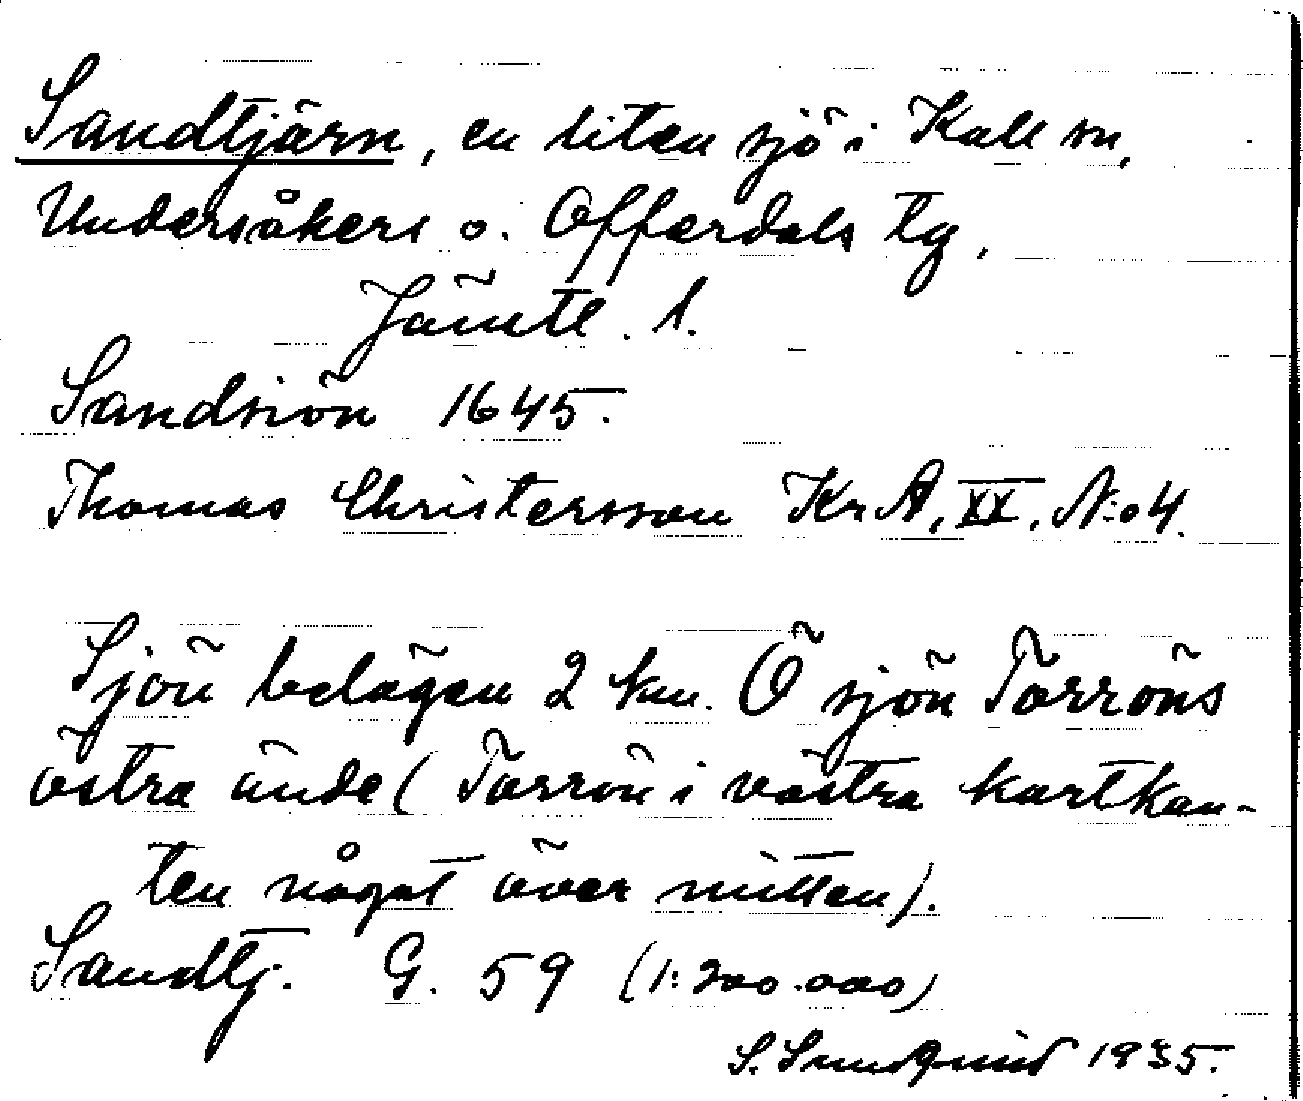 Sandtjärn, en liten sjö i Kall sn,
Undersåkers o. Offerdals tg,
Jämtl. l.
Sandsiön 1645.
Thomas Christersson Kr. A, XX, N:o 4.
Sjön belägen 2 km. Ö sjön Torröns
östra ände (Torrön i västra kartkan-
ten något över mitten).
Sandtj. G. 59 (1:200.000)
S. Sundqvist 1935.